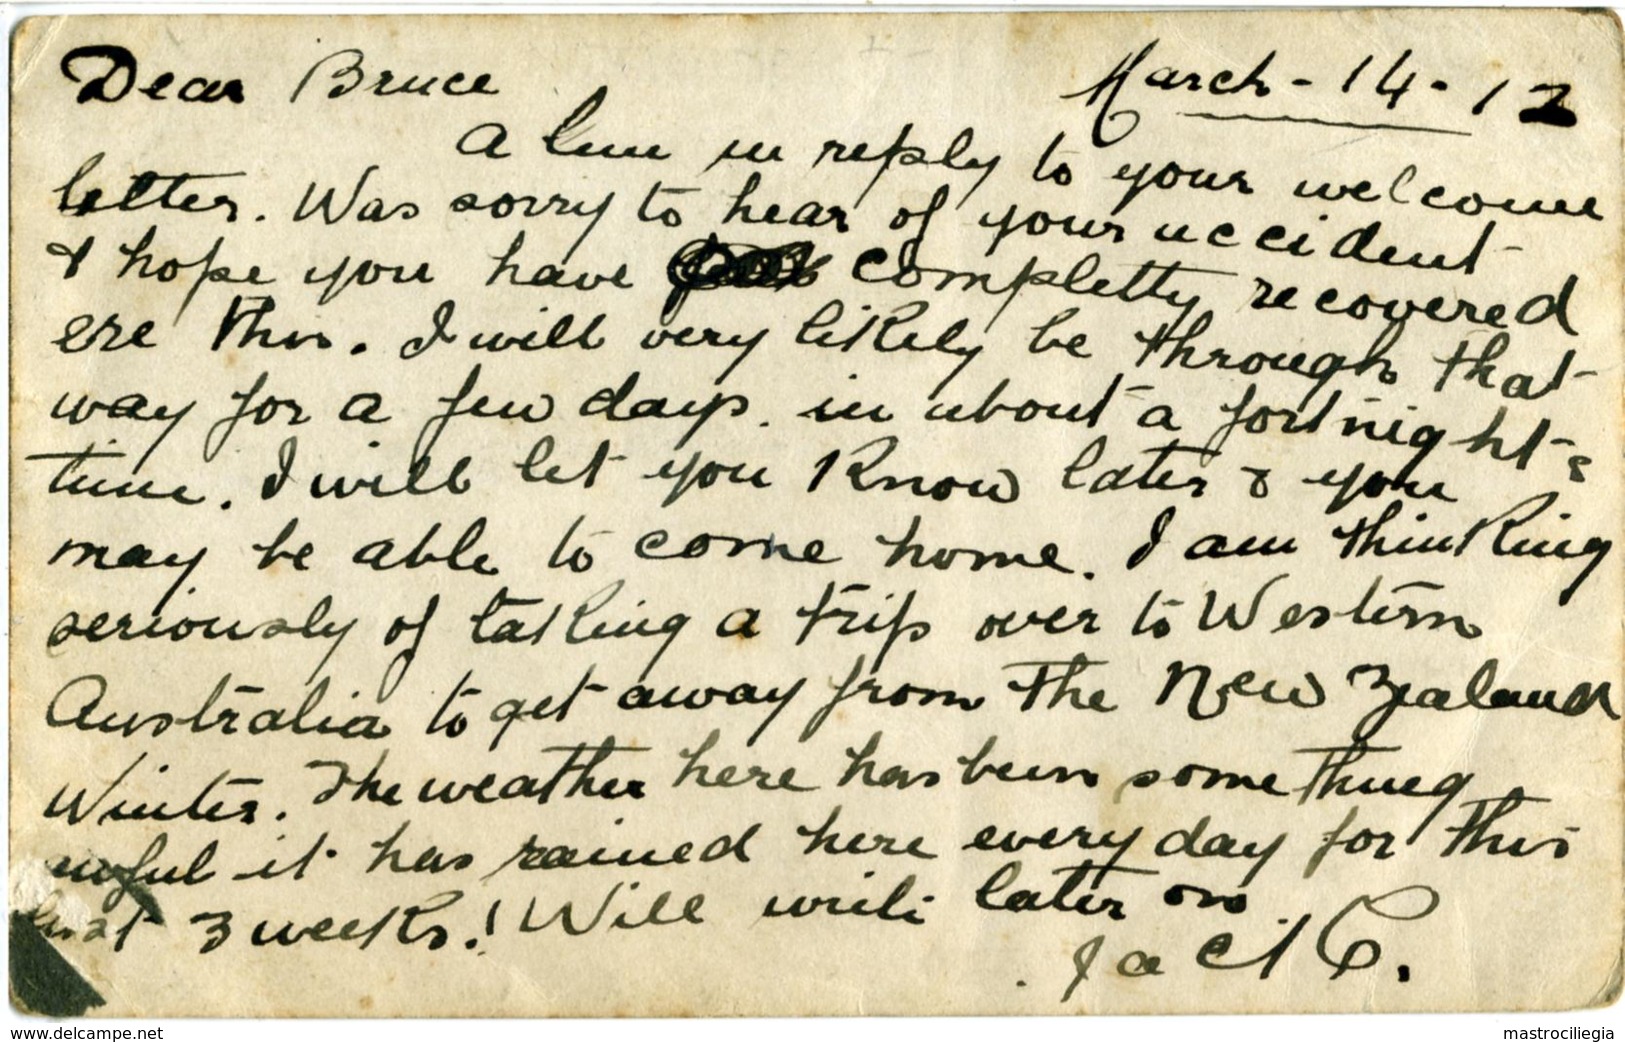 Dear Bruce
March - 14 - 12
A line in reply to your welcome
letter. Was sorry to hear of your accident
& hope you have completty recovered
ere this. I will very likely be through that
way for a few days. in about a fortnight's
time. I will let you know later & you
may be able to come home. I am thinking
seriously of taking a trip over to Western
Australia to get away from the New Zealand
Winter. The weather here has been something
awful it has rained here every day for this
last 3 weeks.! Will write later on.
Jack C.
www.delcampe.net
mastrociliegia